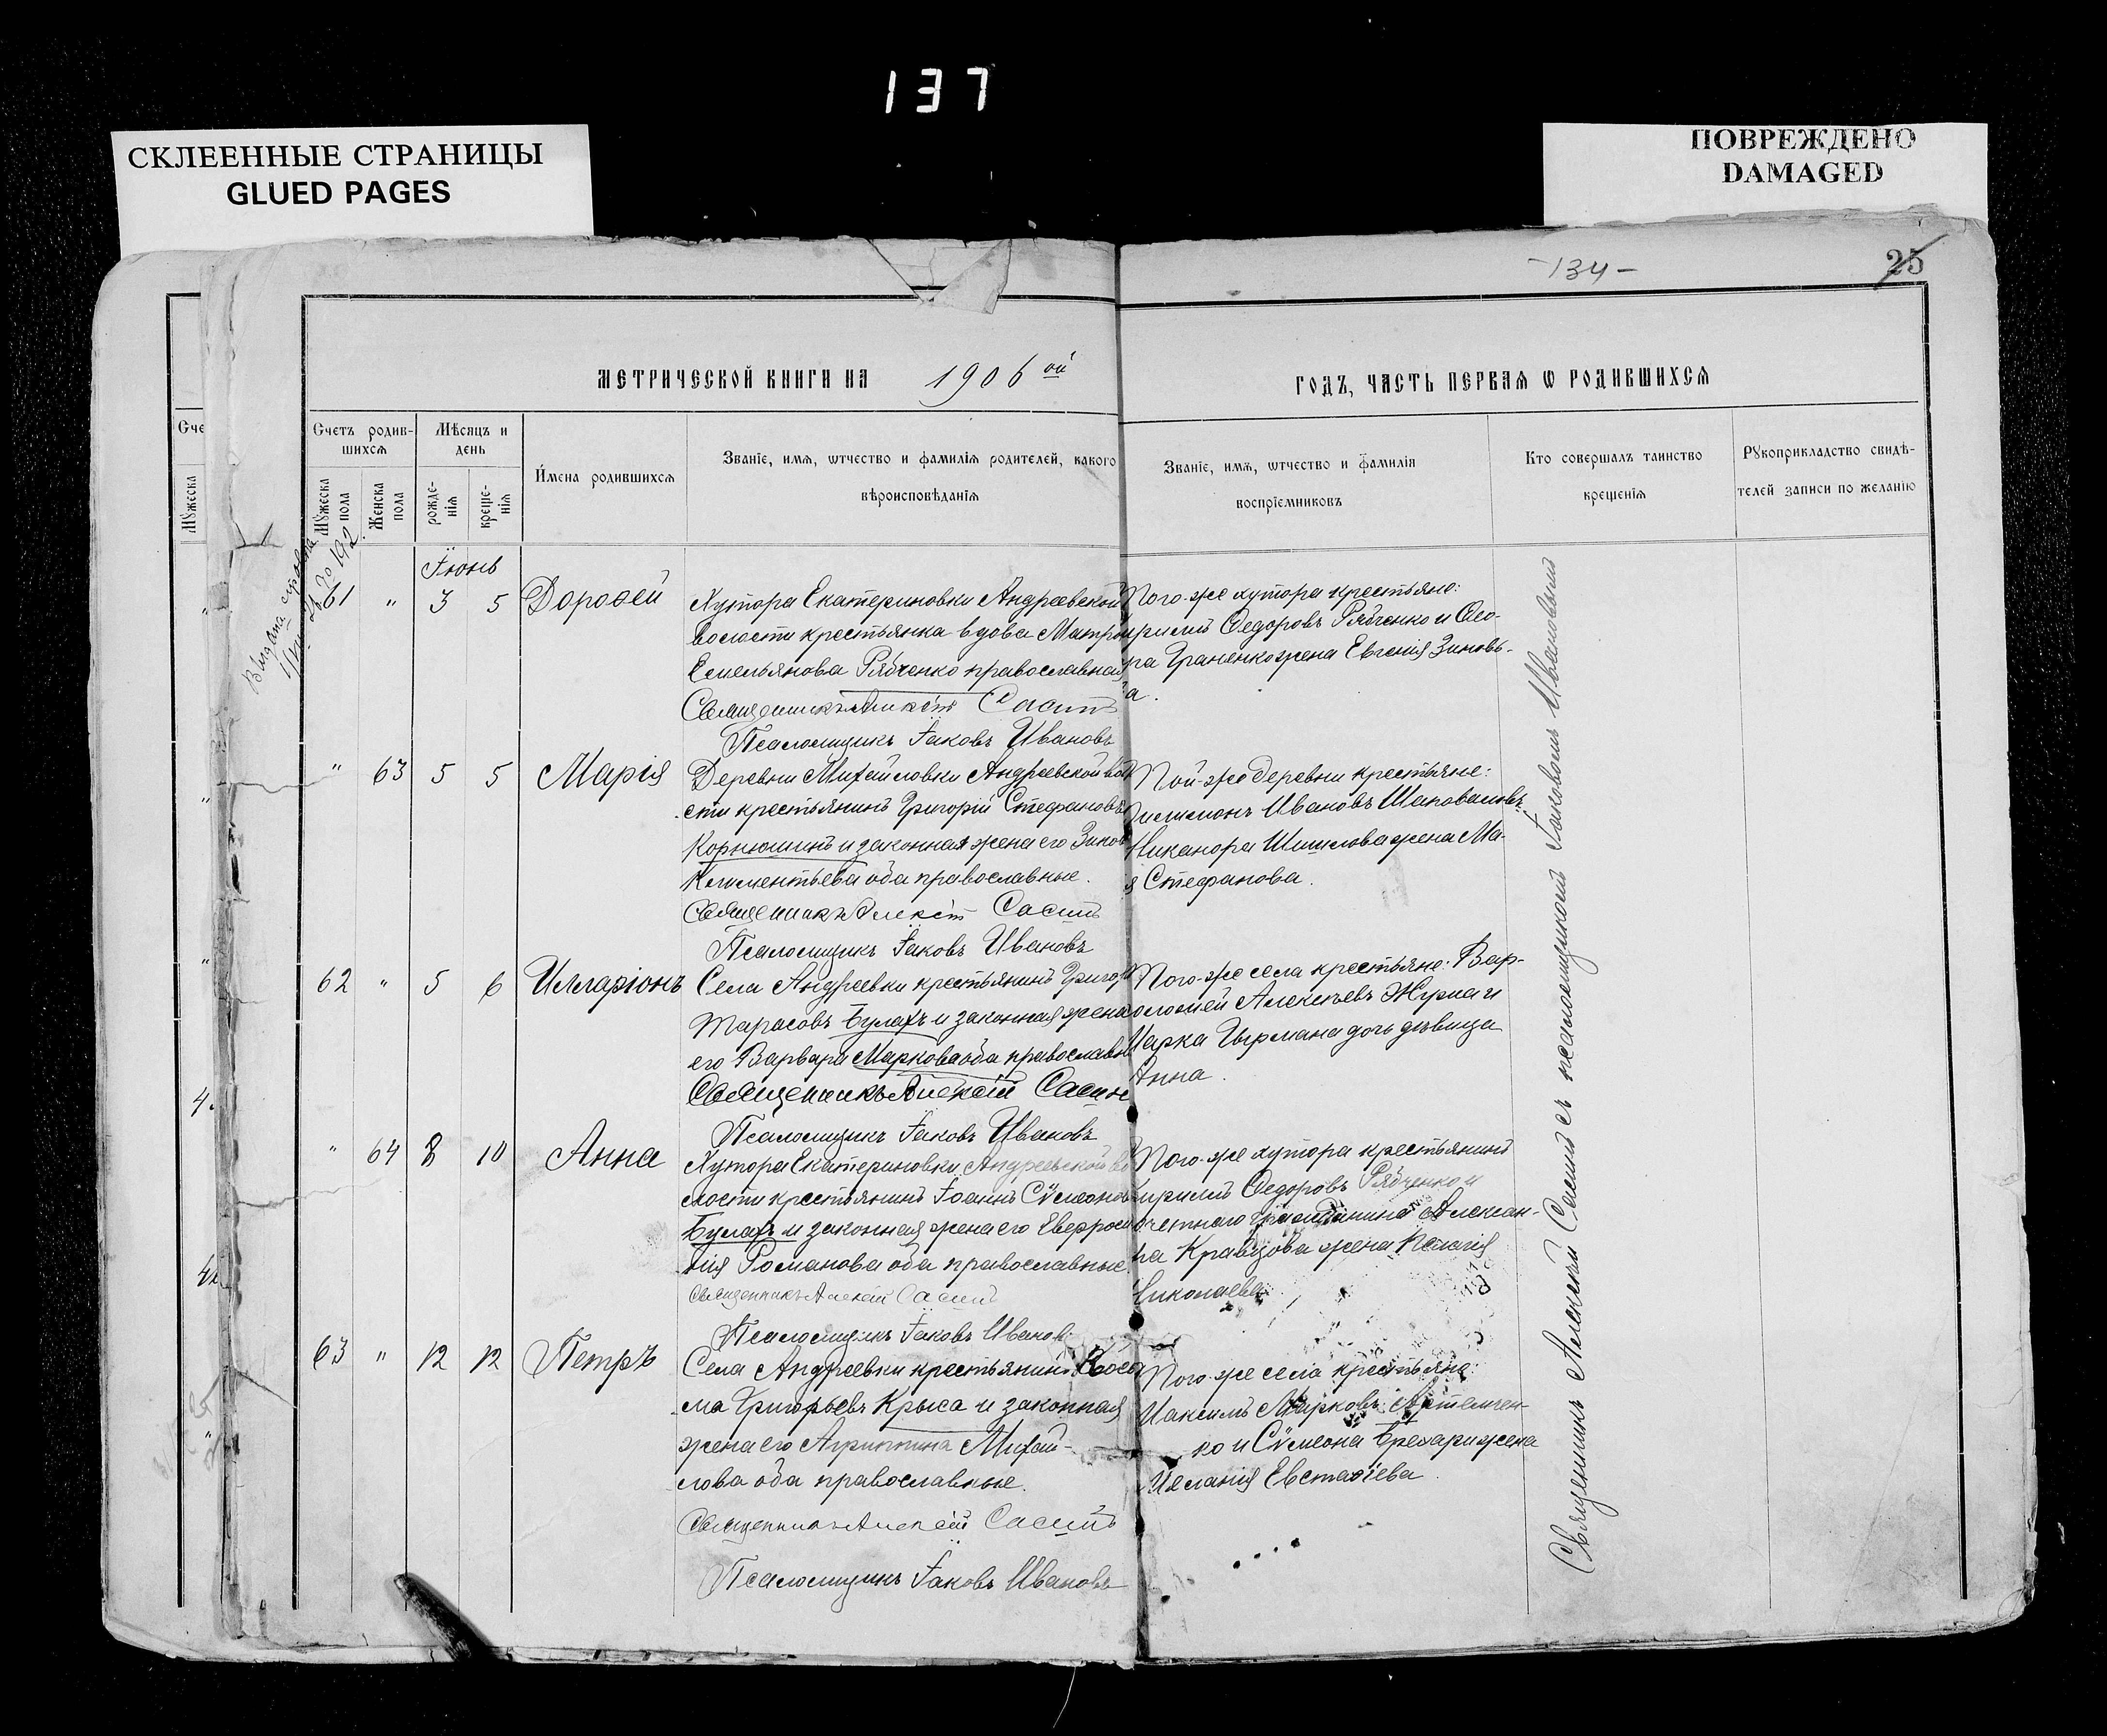 137
СКЛЕЕННЫЕ СТРАНИЦЫ
GLUED PAGES
ПОВРЕЖДЕНО
DAMAGED
-134-
25
МЕТРИЧЕСКОЙ КНИГИ НА 1906 ой
ГОДЪ, ЧАСТЬ ПЕРВАѦ Ѡ РОДИВШИХСѦ
Сче
Мꙋжеска
Счетъ родив-
шихсѧ
Мꙋжеска
пола
Женска
пола
Мѣсяцъ и
день
рожде-
нїѧ
креще-
нїѧ
Имена родившихсѧ
Званїе, имѧ, ѡтчество и фамилїѧ родителей, какого
вѣроисповѣданїѧ
Званїе, имѧ, ѡтчество и фамилїѧ
воспрїемниковъ
Кто совершалъ таинство
крещенїѧ
Рꙋкоприкладство свидѣ-
телей записи по желанїю
Выдана справка
Іюнь
61 " 3 5 Дороѳей
Хутора Екатериновки Андреевской
волости крестьянка вдова Матрон
Емельянова Рябченко православная
Священникъ Алексій Сасинъ
Псаломщикъ Іаковъ Ивановъ
Того-же хутора крестьяне:
ирилъ Ѳедоровъ Рябченко и Ѳео-
ра Граненко жена Евгенія Зиновь-
а.
" 63 5 5 Марія
Деревни Михайловки Андреевской вол
сти крестьянинъ Григорій Стефановъ
Корнюшинъ и законная жена его Зинов
Климентьева оба православные.
Священникъ Алексій Сасинъ
Псаломщикъ Іаковъ Ивановъ
Той-же деревни крестьяне:
Ивановъ Шаповаловъ
Никанора Шишлова жена Ма-
я Стефанова.
62 " 5 6 Илларіонъ
Села Андреевки крестьянинъ Григор
Тарасовъ Булахъ и законная жена
его Варвара Маркова оба православн
Священникъ Алексій Сасин
Псаломщикъ Іаковъ Ивановъ
Того-же села крестьяне: Вар-
оломей Алексѣевъ Журма и
Марка Цырмана дочь дѣвица
Анна.
" 64 8 10 Анна
Хутора Екатериновки Андреевской во
лости крестьянинъ Іоаннъ Сѵмеонов
Булахъ и законная жена его Евфроси
нія Романова оба православные.
Священникъ Алексій Сасинъ
Псаломщикъ Іаковъ Иванов
Того-же хутора крестьянинъ
Кирилъ Ѳедоровъ Рябченко и
очетнаго гражданина Алексан-
ра Кравцова жена Пелагія
Николаева
63 " 12 12 Петръ
Села Андреевки крестьянинъ Косо
ма Григорьевъ Крыса и законная
жена его Агриппина Михай-
лова оба православные.
Священникъ Алексій Сасинъ
Псаломщикъ Іаковъ Ивановъ
Того-же села крестьяне:
Максимъ Марковъ Артемен-
ко и Сѵмеона Брехари жена
Меланія Евстаѳіева.
Священникъ Алексѣй Сасинъ съ псаломщикомъ Іаковомъ Ивановымъ